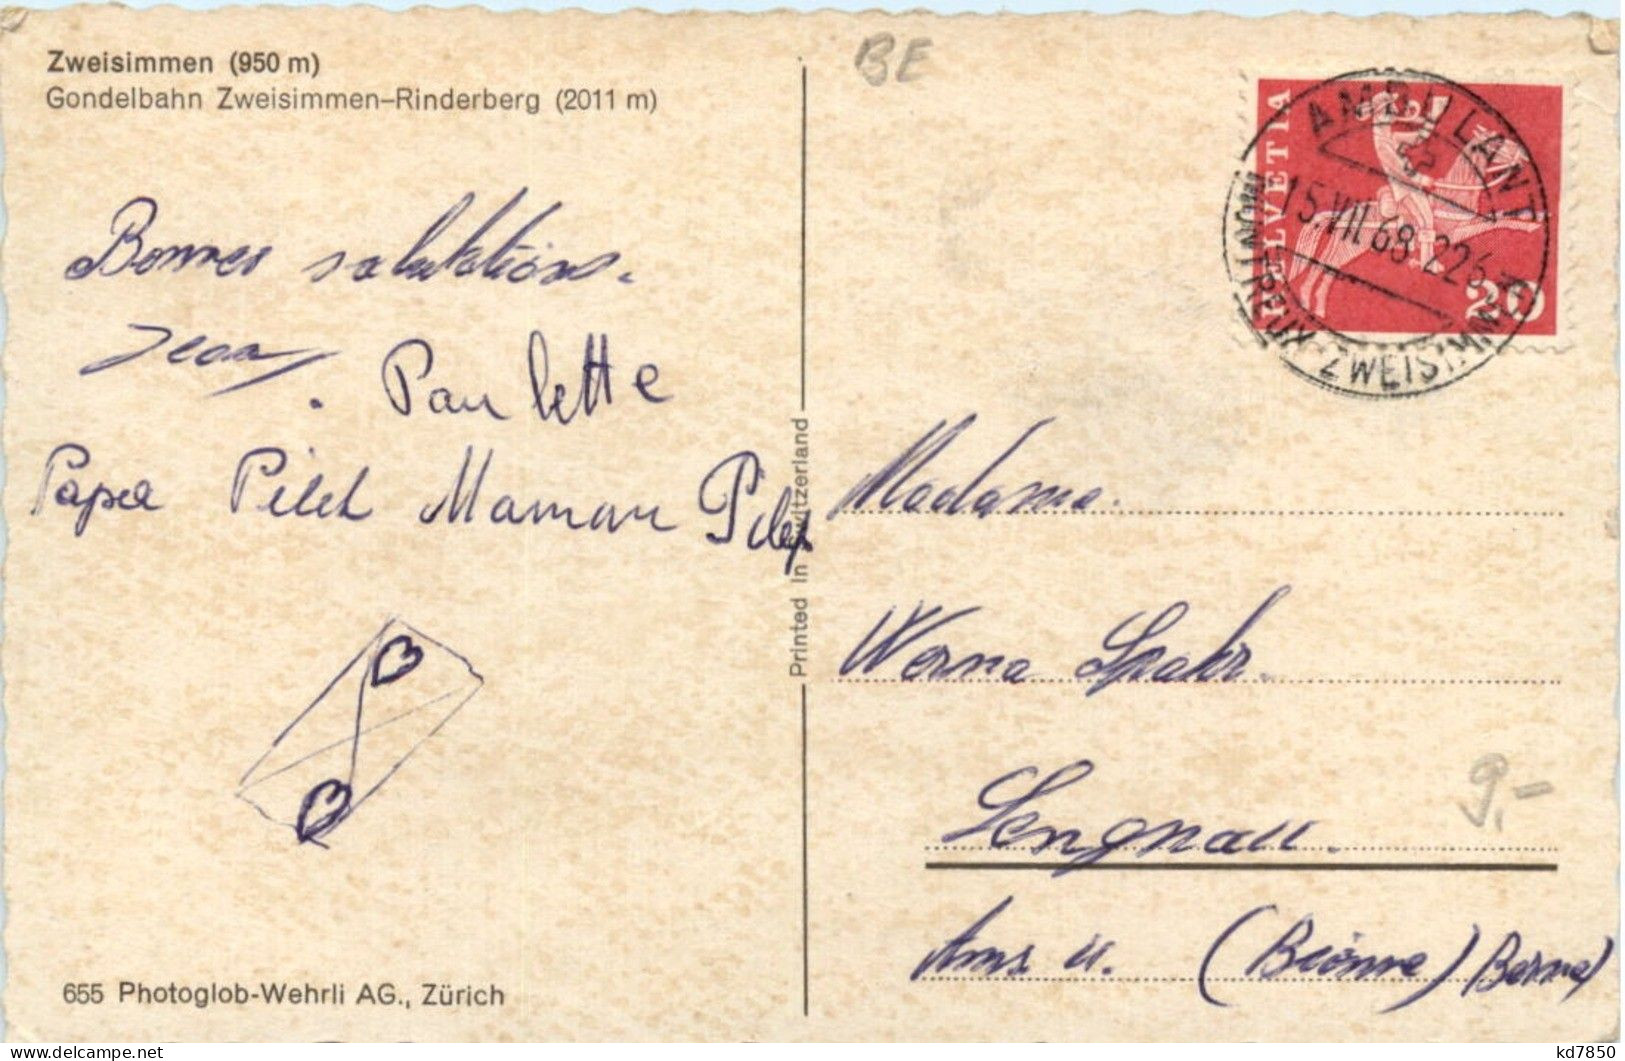 Zweisimmen (950 m)
Gondelbahn Zweisimmen–Rinderberg (2011 m)
BE
HELVETIA
20
AMBULANT
15.VII.68
MONTREUX-ZWEISIMMEN
Bonnes salutations.
Jean
Paulette
Papa Pilet Maman Pilet
Printed in Switzerland
Madame.
Werna Spahr.
Lengnau.
9.-
(Bienne) Berne
655 Photoglob-Wehrli AG., Zürich
kd7850